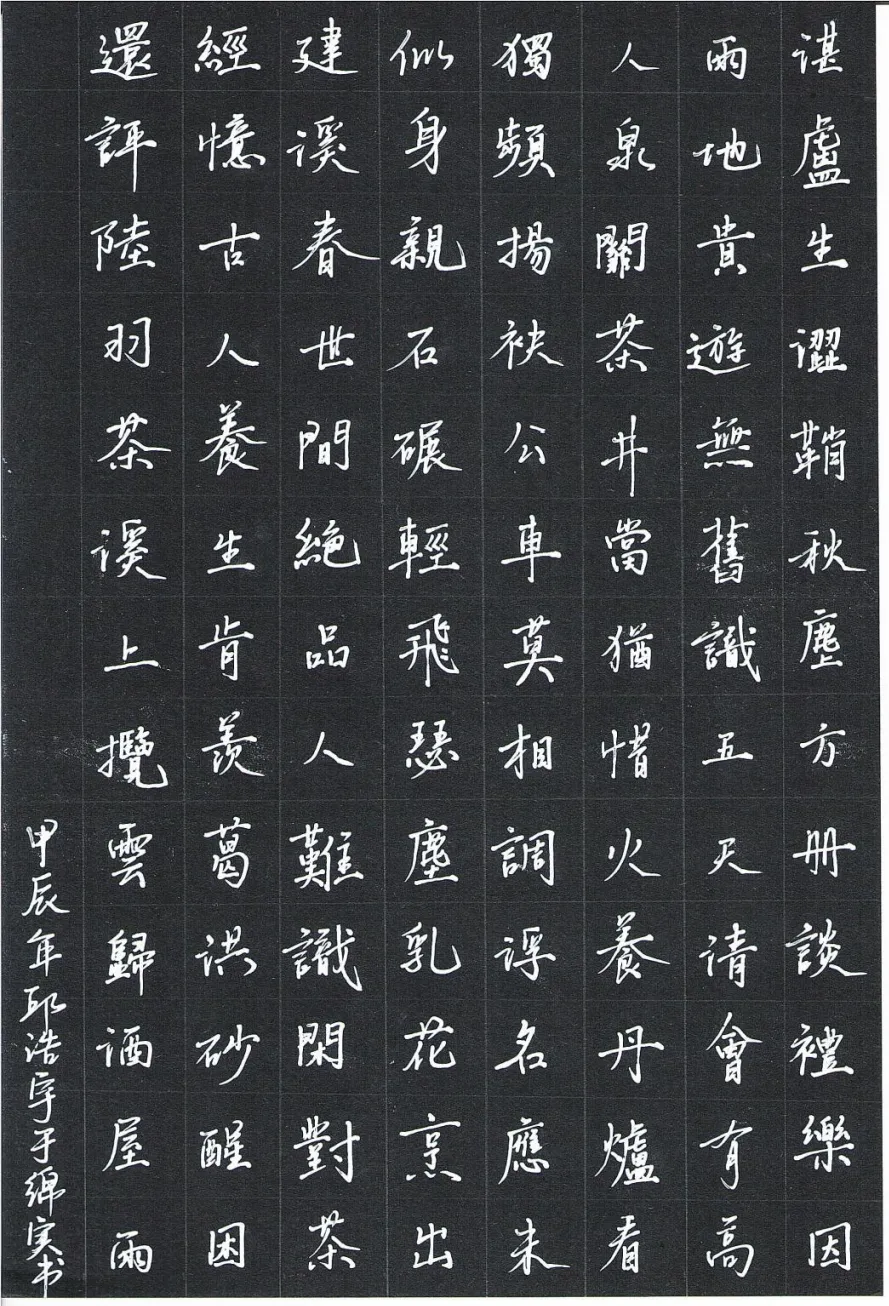 谌盧生澀鞘秋塵方冊談禮樂因
雨地貴遊無舊識五天請會有高
人泉關茶井當猶惜火養丹爐看
獨頻揚袂公車莫相調浮名應未
似身親石碾輕飛瑟塵乳花烹出
建溪春世間絕品人難識閑對茶
經憶古人養生肯羨葛洪砂醒困
還評陸羽茶溪上攬雲歸洒屋雨
甲辰年邱浩宇于綿實书